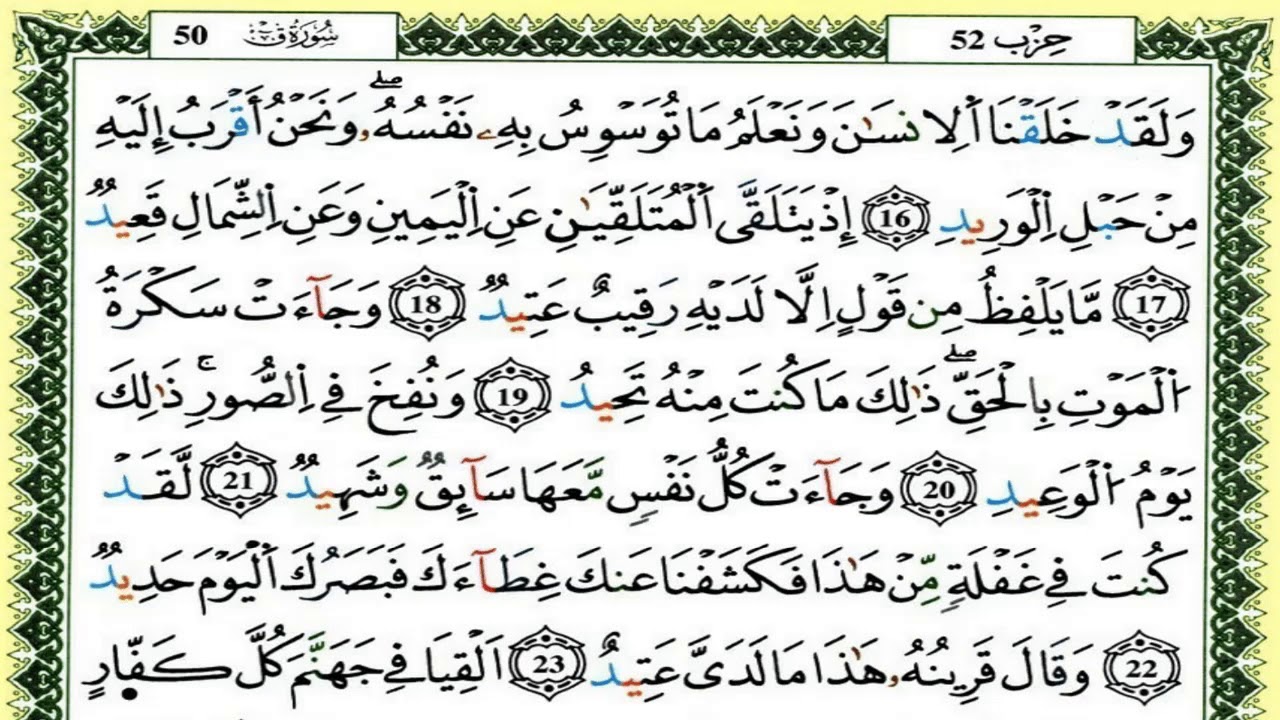 حِزْب 52
سُورَةُ قٓ 50
وَلَقَدْ خَلَقْنَا اَ۬لِانسَٰنَ وَنَعْلَمُ مَا تُوَسْوِسُ بِهِۦ نَفْسُهُۥۖ وَنَحْنُ أَقْرَبُ إِلَيْهِ
مِنْ حَبْلِ اِ۬لْوَرِيدِ 16 إِذْ يَتَلَقَّى اَ۬لْمُتَلَقِّيَٰنِ عَنِ اِ۬لْيَمِينِ وَعَنِ اِ۬لشِّمَالِ قَعِيدٌ
17 مَّا يَلْفِظُ مِن قَوْلٍ اِلَّا لَدَيْهِ رَقِيبٌ عَتِيدٌ 18 وَجَآءَتْ سَكْرَةُ
اُ۬لْمَوْتِ بِالْحَقِّۖ ذَٰلِكَ مَا كُنتَ مِنْهُ تَحِيدُ 19 وَنُفِخَ فِے اِ۬لصُّورِۚ ذَٰلِكَ
يَوْمُ اُ۬لْوَعِيدِ 20 وَجَآءَتْ كُلُّ نَفْسٍ مَّعَهَا سَآئِقٌ وَشَهِيدٌ 21 لَّقَدْ
كُنتَ فِے غَفْلَةٍ مِّنْ هَٰذَا فَكَشَفْنَا عَنكَ غِطَآءَكَ فَبَصَرُكَ اَ۬لْيَوْمَ حَدِيدٌ
22 وَقَالَ قَرِينُهُۥ هَٰذَا مَا لَدَىَّ عَتِيدٌ 23 اَلْقِيَا فِے جَهَنَّمَ كُلَّ كَفّ۪ارٍ